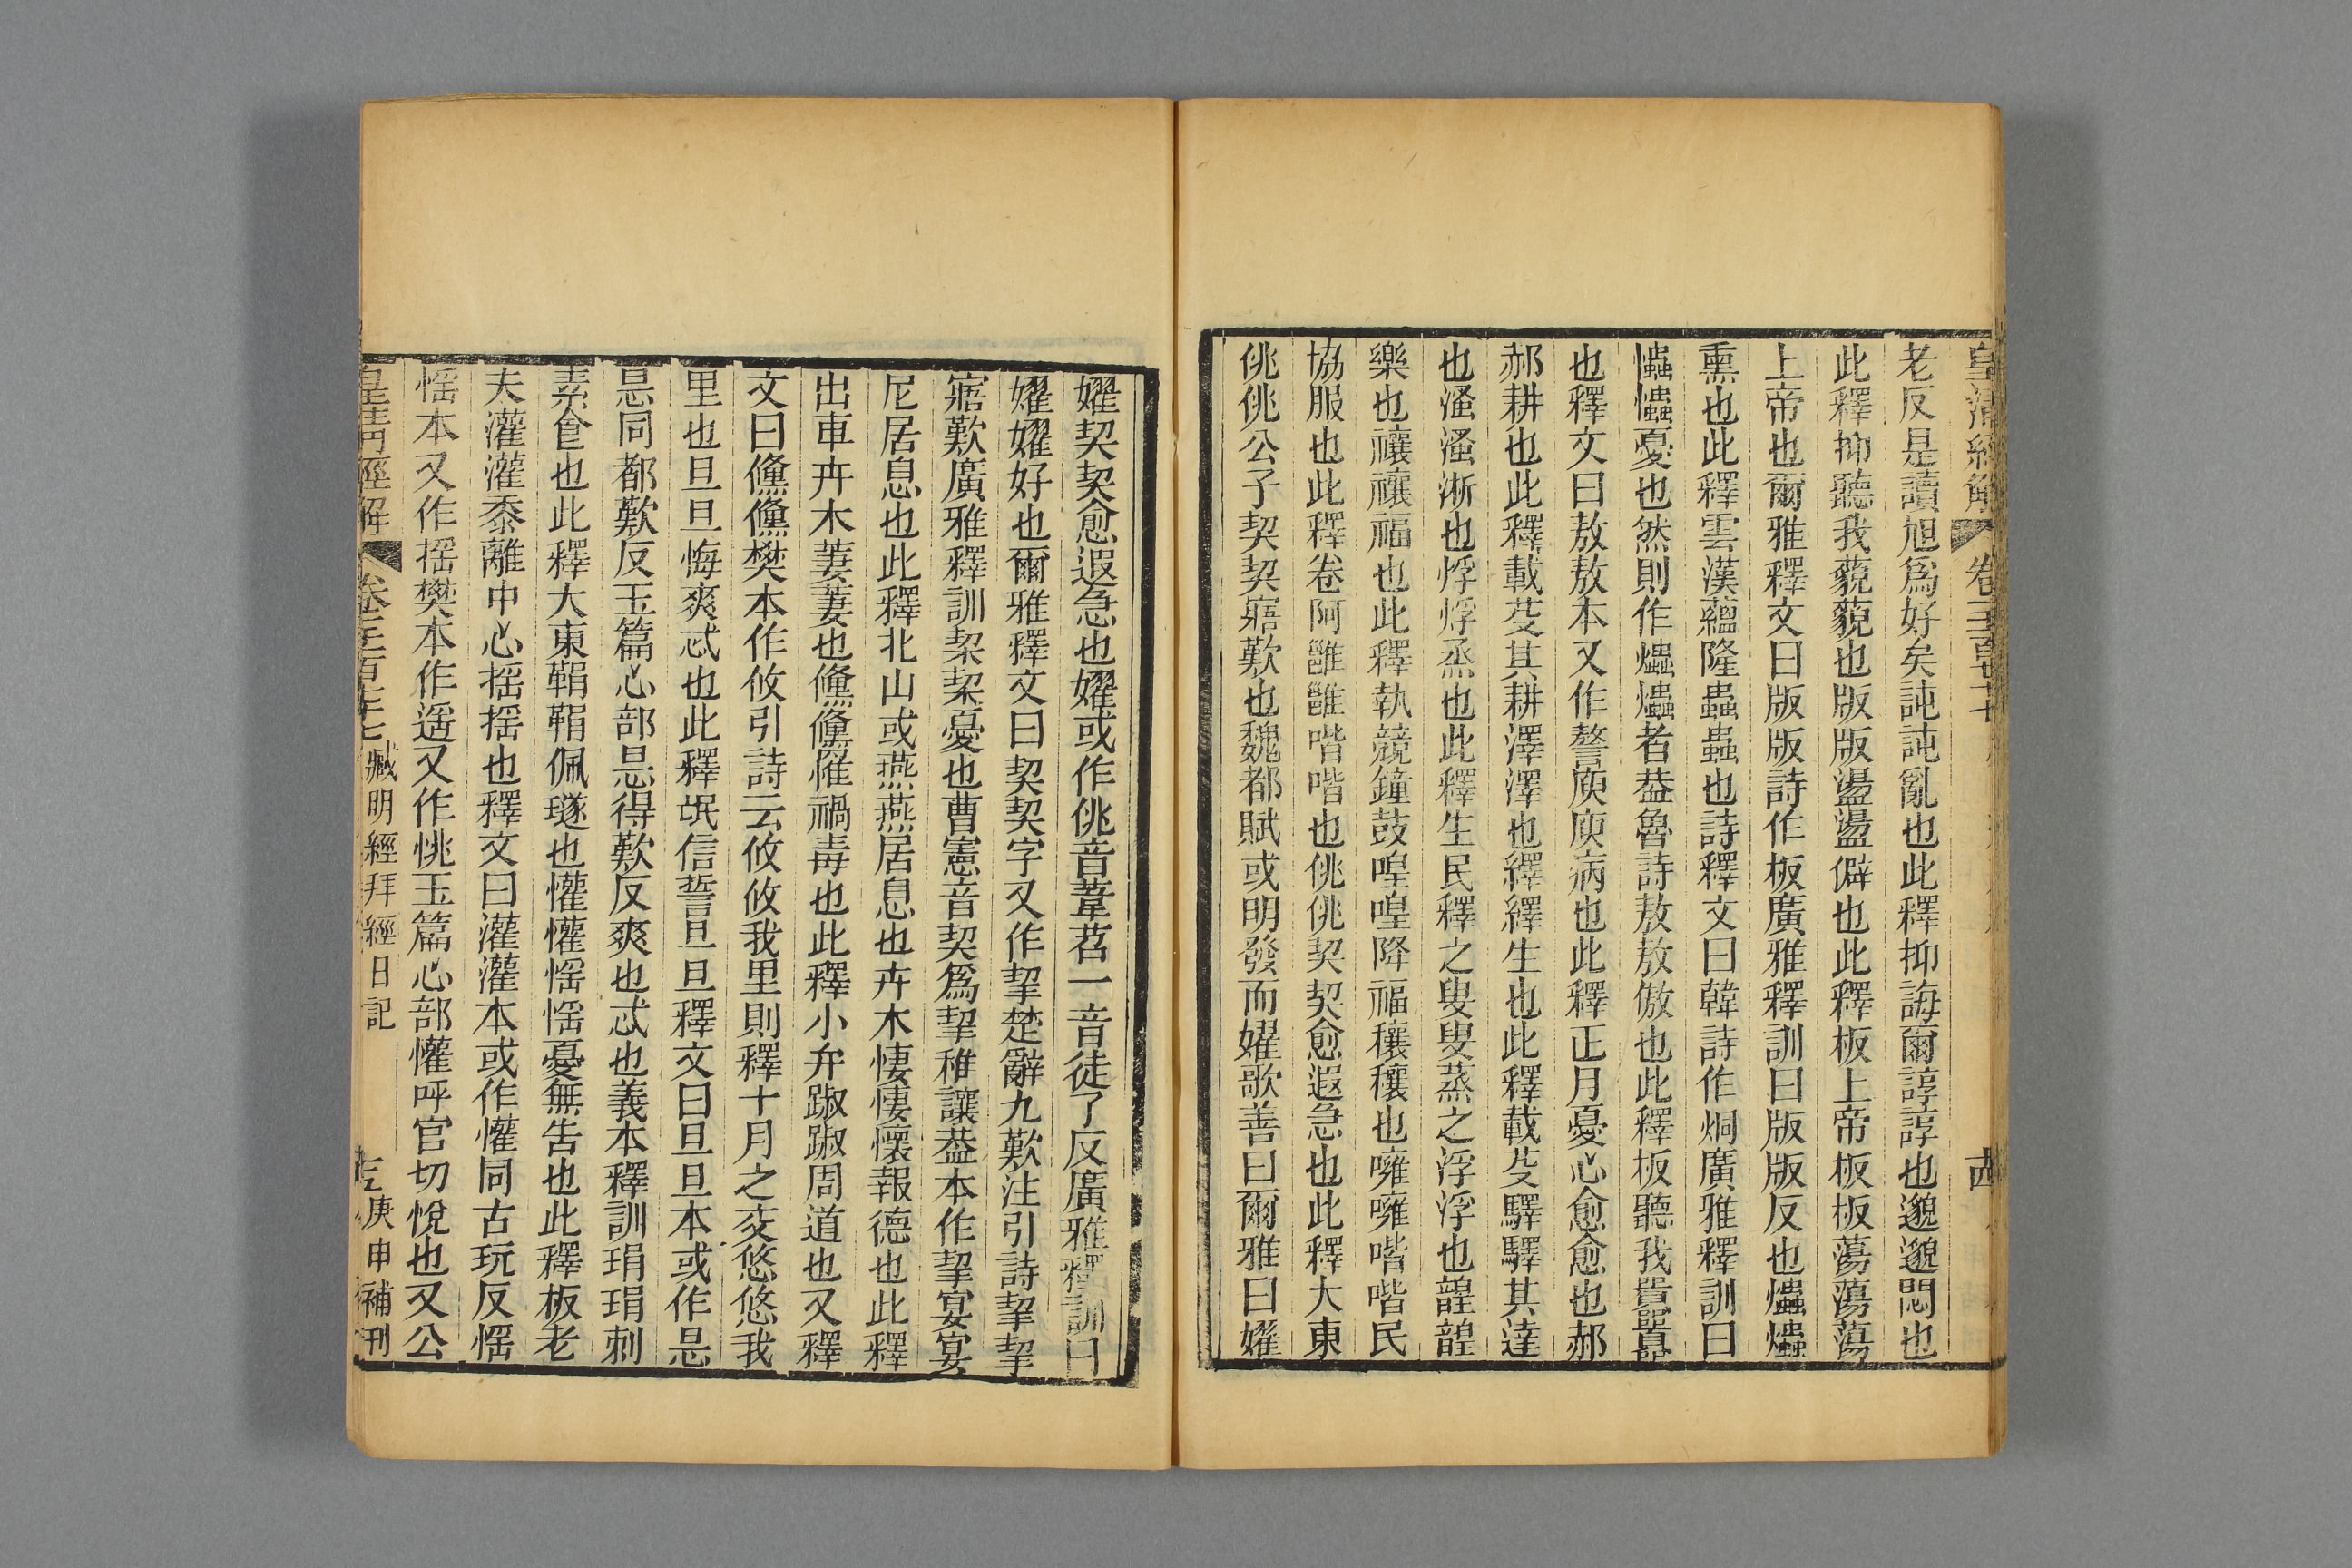 皇清經解
卷
老反是讀旭爲好矣訰訰亂也此釋抑誨爾諄諄也邈邈悶也
此釋抑聽我藐藐也版版盪盪僻也此釋板上帝板板蕩蕩
上帝也爾雅釋文曰版版詩作板廣雅釋訓曰版版反也爞爞
熏也此釋雲漢蘊隆蟲蟲也詩釋文曰韓詩作烔廣雅釋訓曰
爞爞憂也然則作爞爞者葢魯詩敖敖傲也此釋板聽我嚻嚻
也釋文曰敖敖本又作謷庾庾病也此釋正月憂心愈愈也郝
郝耕也此釋載芟其耕澤澤也繹繹生也此釋載芟驛驛其達
也溞溞淅也烰烰烝也此釋生民釋之叟叟蒸之浮浮也韹韹
樂也禳禳福也此釋執競鐘鼓喤喤降福穰穰也噰噰喈喈民
協服也此釋卷阿雝雝喈喈也佻佻契契愈遐急也此釋大東
佻佻公子契契寤歎也魏都賦或明發而嬥歌善曰爾雅曰嬥
嬥契契愈遐急也嬥或作佻音葦苕一音徒了反廣雅釋訓曰
嬥嬥好也爾雅釋文曰契契字又作挈楚辭九歎注引詩挈挈
寤歎廣雅釋訓栔栔憂也曹憲音契爲挈稚讓葢本作挈宴宴
尼居息也此釋北山或燕燕居息也卉木悽悽懷報德也此釋
出車卉木萋萋也儵儵罹禍毒也此釋小弁踧踧周道也又釋
文曰儵儵樊本作攸引詩云攸攸我里則釋十月之交悠悠我
里也旦旦悔爽忒也此釋氓信誓旦旦釋文曰旦旦本或作悬
悬同都歎反玉篇心部悬得歎反爽也忒也義本釋訓琄琄刺
素食也此釋大東鞙鞙佩璲也懽懽愮愮憂無告也此釋板老
夫灌灌黍離中心搖搖也釋文曰灌灌本或作懽同古玩反愮
愮本又作搖樊本作遥又作恌玉篇心部懽呼官切悅也又公
皇清經解
臧明經拜經日記
庚申補刊